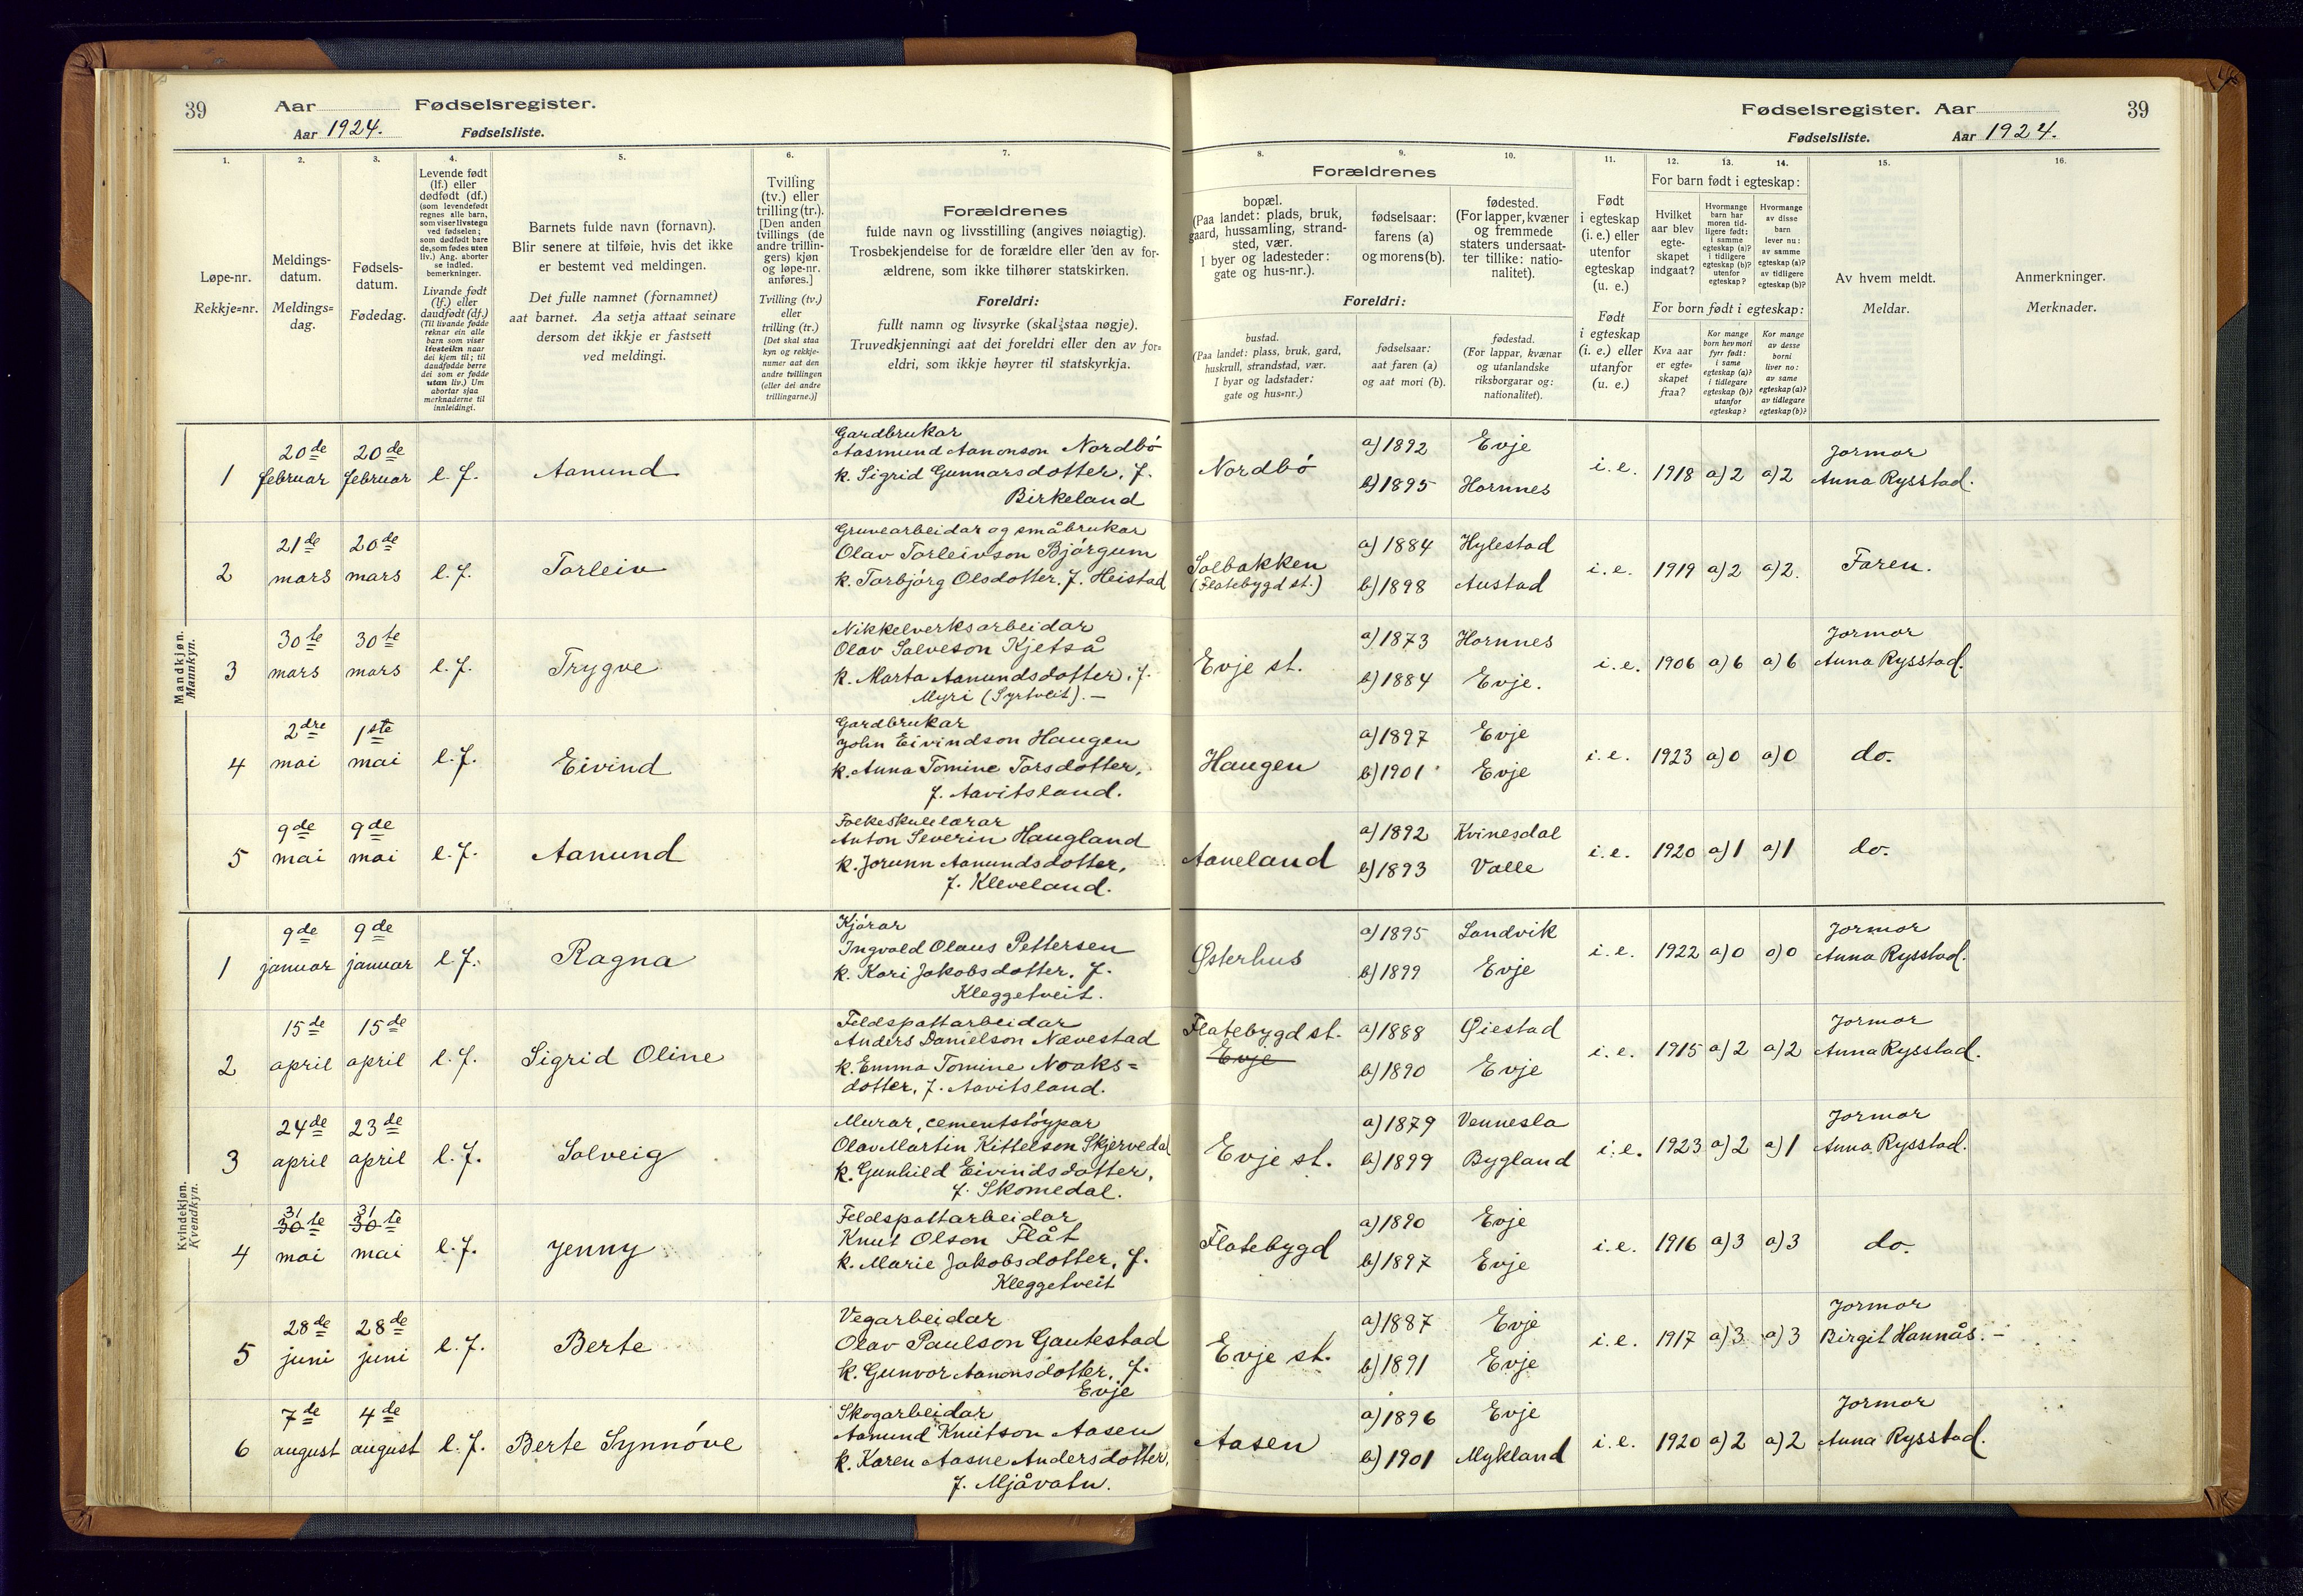 39 Aar Fødselsregister.
Aar 1924. Fødselsliste.
Fødselsregister. Aar 39
Fødselsliste. Aar 1924.
1. 2. 3. 4. 5. 6. 7.
Løpe-nr.
Rekkje=nr.
Meldings-
datum.
Meldings=
dag.
Fødsels-
datum.
Fødedag.
Levende født
(lf.) eller
dødfødt (df.)
(som levendefødt
regnes alle barn,
som viser livstegn
ved fødselen;
som dødfødt bare
de, som fødes uten
liv.) Ang. aborter
se indled.
bemerkninger.
Livande født
(lf.) eller
daudfødt (df.)
(Til livande fødde
reknar ein alle
barn som viser
livsteikn naar
dei kjem til; til
daudfødde berre
dei som er fødde
utan liv.) Um
abortar sjaa
merknaderne til
innleidingi.
Barnets fulde navn (fornavn).
Blir senere at tilføie, hvis det ikke
er bestemt ved meldingen.
Det fulle namnet (fornamnet)
aat barnet. Aa setja attaat seinare
dersom det ikkje er fastsett
ved meldingi.
Tvilling
(tv.) eller
trilling (tr.).
[Den anden
tvillings (de
andre trillin-
gers) kjøn
og løpe-nr.
anføres.]
Tvilling (tv.)
eller
trilling (tr.)
[Det skal staa
kyn og rekkje-
numer aat den
andre tvillingen
(eller dei andre
trillingarne.)]
Forældrenes
fulde navn og livsstilling (angives nøiagtig).
Trosbekjendelse for de forældre eller den av for-
ældrene, som ikke tilhører statskirken.
Foreldri:
fullt namn og livsyrke (skal staa nøgje).
Truvedkjenningi aat dei foreldri eller den av for=
eldri, som ikkje høyrer til statskyrkja.
8. 9. 10. 11. 12. 13. 14. 15. 16.
Forældrenes
bopæl.
(Paa landet: plads, bruk,
gaard, hussamling, strand-
sted, vær.
I byer og ladesteder:
gate og hus-nr.).
fødselsaar:
farens (a)
og morens (b).
fødested.
(For lapper, kvæner
og fremmede
staters undersaat-
ter tillike: natio-
nalitet).
Foreldri:
bustad.
(Paa landet: plass, bruk, gard,
huskrull, strandstad, vær.
I byar og ladstader:
gate og hus=nr.)
fødselsaar:
aat faren (a)
og aat mori (b).
fødestad.
(For lappar, kvænar
og utanlandske
riksborgarar og:
nationalitet).
Født
i egteskap
(i. e.) eller
utenfor
egteskap
(u. e.)
Født
i egteskap
(i. e.) eller
utanfor
(u. e.)
For barn født i egteskap:
Hvilket
aar blev
egte-
skapet
indgaat?
Hvormange
barn har
moren tid-
ligere født:
i samme
egteskap (a)?
i tidligere
egteskap (b)?
utenfor
egteskap?
Hvormange
av disse
barn
lever nu:
av samme
egteskap (a)?
av tidligere
egteskap (b)?
For born født i egteskap:
Kva aar
er egte=
skapet
fraa?
Kor mange
born hev mori
fyrr født:
i same
egteskap (a)?
i tidlegare
egteskap (b)?
utanfor
egteskap?
Kor mange
av desse
borni
liver no:
av same
egteskap (a)?
av tidlegare
egteskap (b)?
Av hvem meldt.
Meldar.
Anmerkninger.
Merknader.
Mandkjøn.
Mannkyn.
1 20de februar 20de februar l. f. Aanund
Gardbrukar
Aasmund Aanonson Nordbó
k. Sigrid Gunnarsdotter, f.
Birkeland
Nordbó a) 1892 Evje
b) 1895 Hornnes
i. e. 1918 a) 2 a) 2 Jormor
Anna Rysstad.
2 21de mars 20de mars l. f. Torleiv
Gruvearbeidar og småbrukar
Olav Torleivson Bjórgum
k. Torbjórg Olsdotter. f. Heistad
Solbakken
(Flatebygd st.)
a) 1884 Hylestad
b) 1898 Austad
i. e. 1919 a) 2 a) 2. Faren.
3 30te mars 30te mars l. f. Trygve
Nikkelverksarbeidar
Olav Salveson Kjetså
k. Marta Aanundsdotter, f.
Myri (Syrtveit). —
Evje st. a) 1873 Hornnes
b) 1884 Evje.
i. e. 1906 a) 6 a) 6 Jormor
Anna Rysstad.
4 2dre mai 1ste mai l. f. Eivind
Gardbrukar
John Eivindson Haugen
k. Anna Tomine Torsdotter,
f. Aavitsland.
Haugen a) 1897 Evje
b) 1901 Evje
i. e. 1923 a) 0 a) 0 do.
5 9de mai 9de mai l. f. Aanund
Folkeskulelærar
Anton Severin Haugland
k. Jorunn Aanundsdotter,
f. Kleveland.
Aaneland a) 1892 Kvinesdal
b) 1893 Valle
i. e. 1920 a) 1 a) 1 do.
Kvindekjøn.
Kvendkyn.
1 9de januar 9de januar l. f. Ragna
Kjórar
Ingvald Olaus Pettersen
k. Kari Jakobsdotter, f.
Kleggetveit.
Østerhus a) 1895 Landvik
b) 1899 Evje
i. e. 1922 a) 0 a) 0 Jormor
Anna Rysstad.
2 15de april 15de april l. f. Sigrid Oline
Feldspattarbeidar
Anders Danielson Nævestad
k. Emma Tomine Noaks=
dotter, f. Aavitsland.
Flatebygd st.
Evje
a) 1888 Øiestad
b) 1890 Evje
i. e. 1915 a) 2 a) 2 Jormor
Anna Rysstad.
3 24de april 23de april l. f. Solveig
Murar, cementstóypar
Olav Martin Kittelson Skjervedal
k. Gunhild Eivindsdotter,
f. Skomedal.
Evje st. a) 1879 Vennesla
b) 1899 Bygland
i. e. 1923 a) 2 a) 1 Jormor
Anna Rysstad.
4 31 30te mai 31 30te mai l. f. Jenny
Feldspattarbeidar
Knut Olson Flåt
k. Marie Jakobsdotter, f.
Kleggetveit
Flatebygd a) 1890 Evje
b) 1897 Evje
i. e. 1916 a) 3 a) 3 do.
5 28de juni 28de juni l. f. Berte
Vegarbeidar
Olav Paulson Gautestad
k. Gunvor Aanonsdotter, f.
Evje
Evje st. a) 1887 Evje
b) 1891 Evje
i. e. 1917 a) 3 a) 3 Jormor
Birgit Hannås. —
6 7de august 4de august l. f. Berte Synnóve
Skogarbeidar
Aanund Knutson Aasen
k. Karen Aasne Andersdotter,
f. Mjåvatn.
Aasen a) 1896 Evje
b) 1901 Mykland
i. e. 1920 a) 2 a) 2 Jormor
Anna Rysstad.